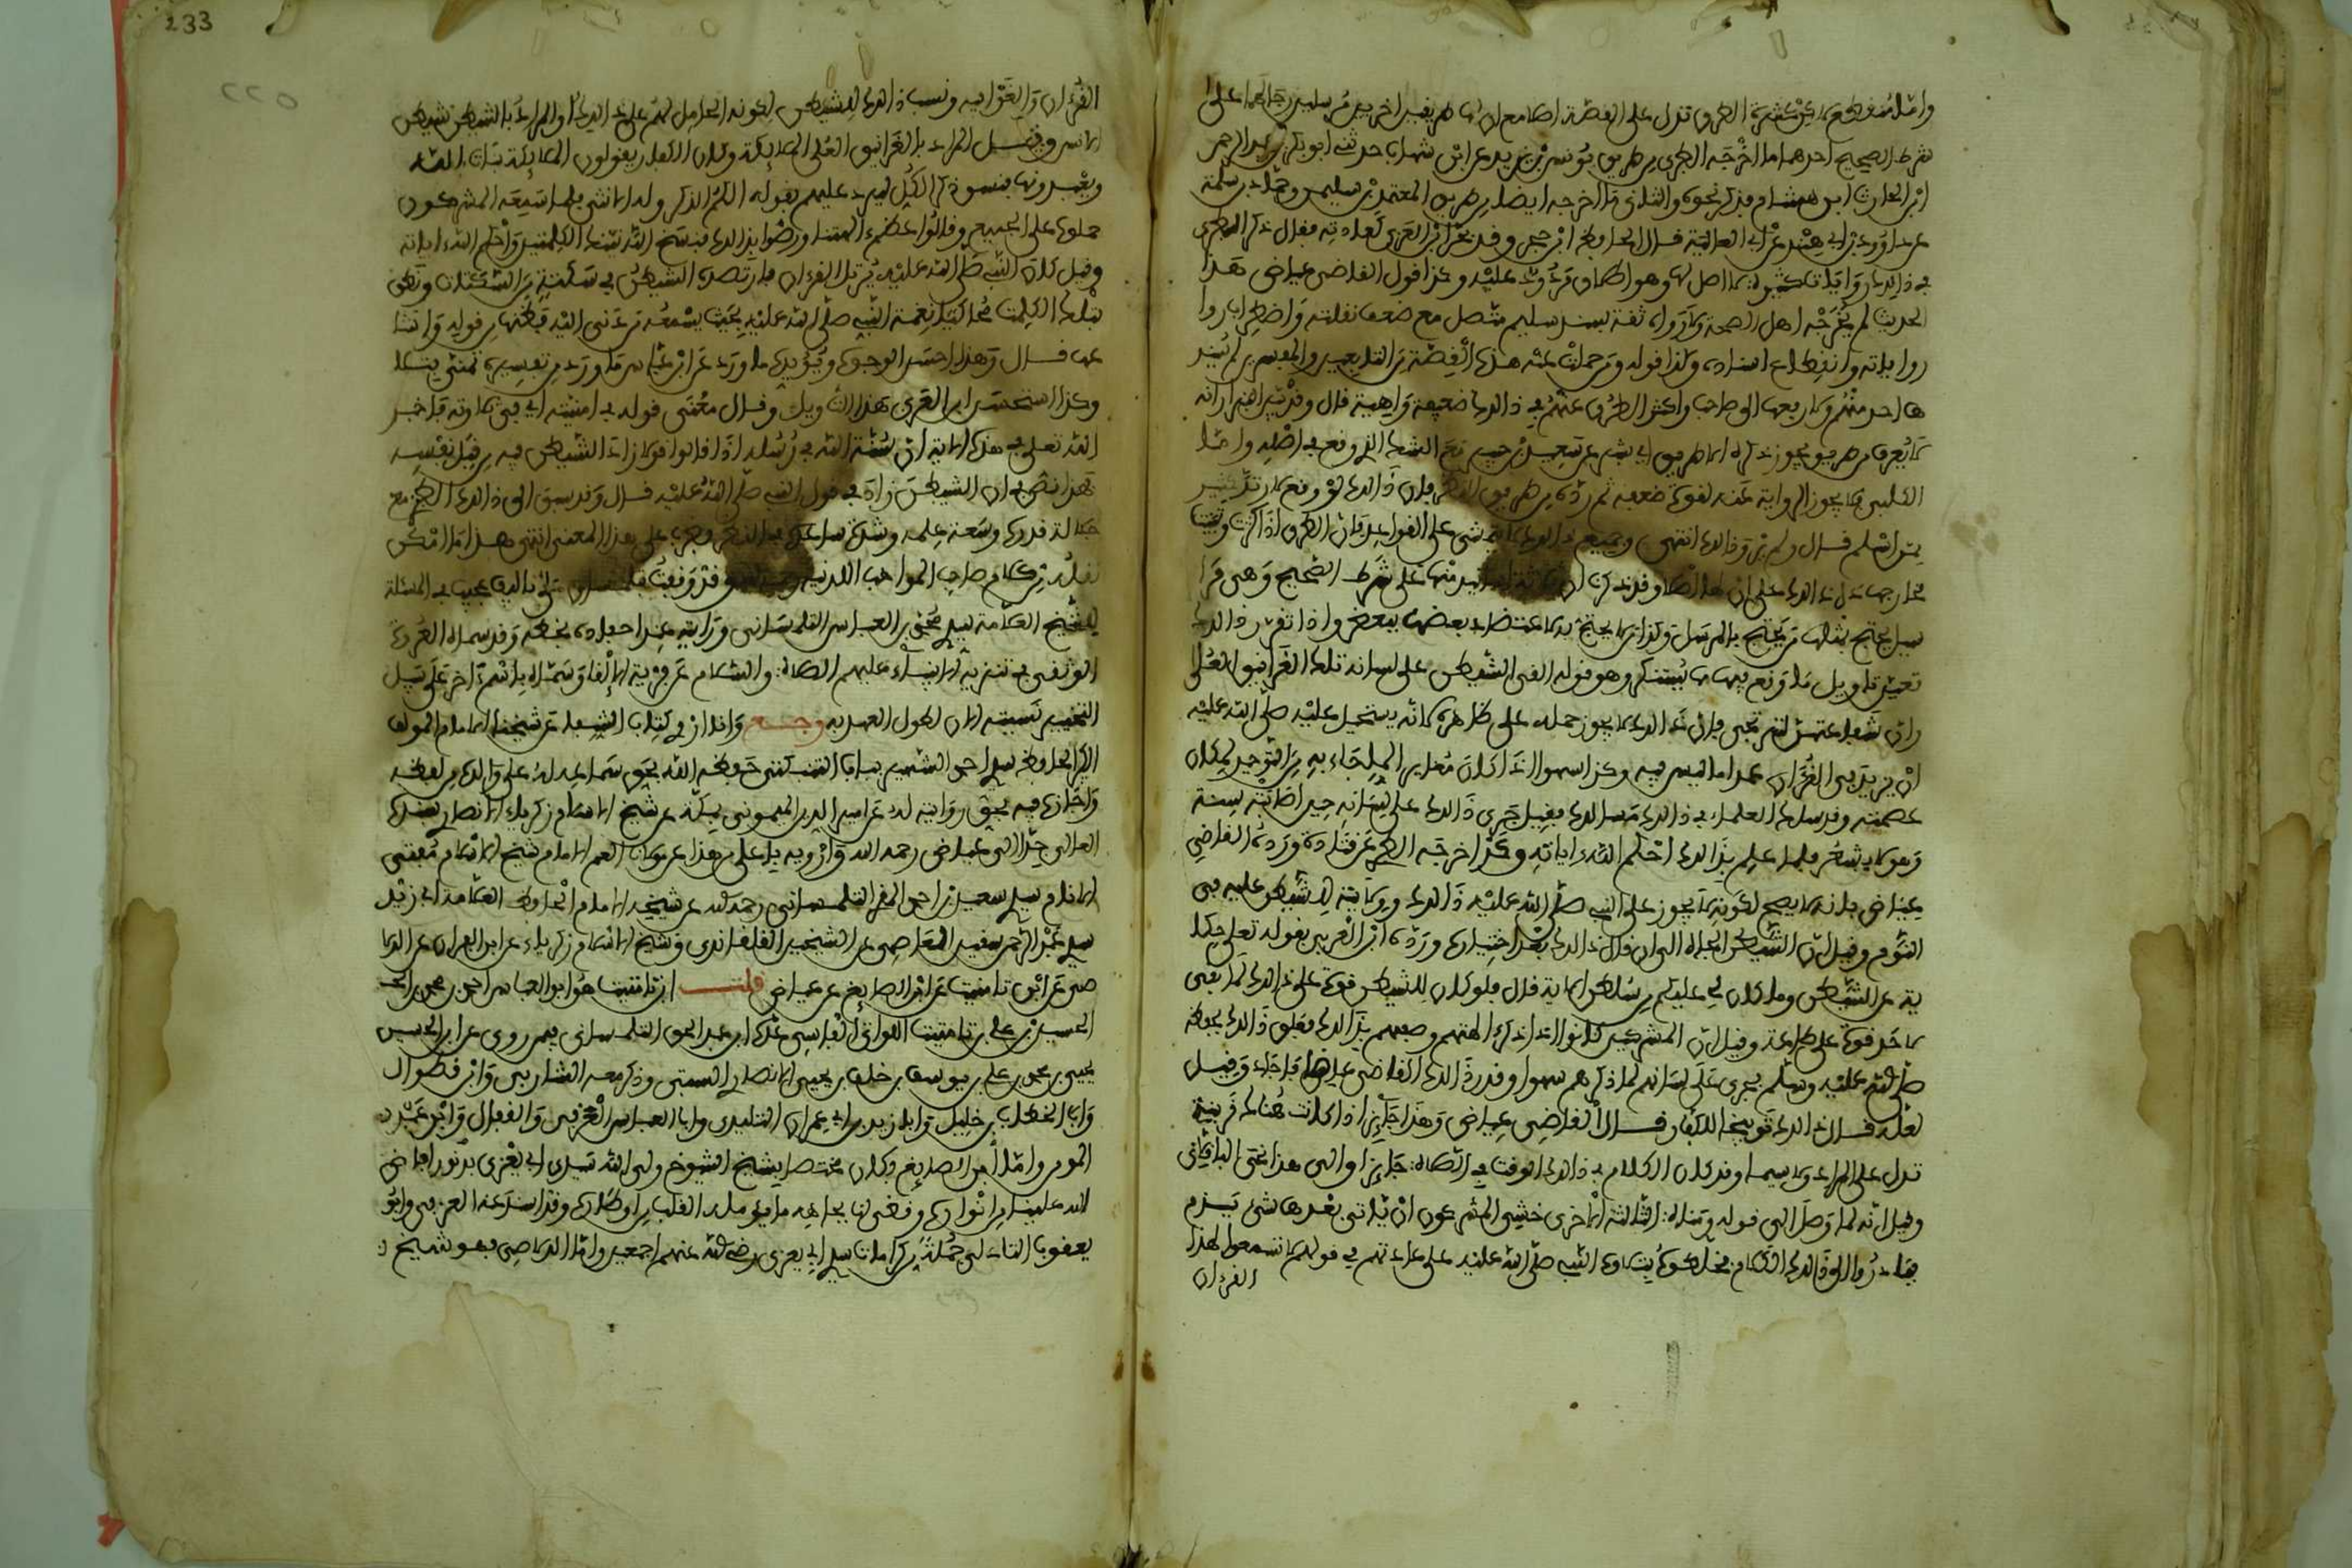 وامّا منقطع لاكن كثرة الطرق تدل على القصّة اصلا مع ان لها طريقين اخريين مرسلين رجالهما على
شرط الصحيح احدهما ما اخرجه الطبري من طريق يونس بن يزيد عن ابن شهاب حدثني ابو بكر بن عبد الرحمن
ابن الحارث ابن هشام فذكر نحوه والثاني ما اخرجه ايضا من طريق المعتمر بن سليمن وحمّاد بن سلمة
عن داوود بن ابي هند عن ابي العالية فال الحافظ ابن حجر وقد تجرّا ابن العربي كعادته فقال ذكر الطبري
في ذالك روايات كثيرة لا اصل لها وهو اطلاق مردود عليه وكذا قول القاضي عياض هذا
الحديث لم يخرّجه اهل الصحة ولا رواه ثقة بسند سليم متصل مع ضعف نقلته واضطراب روا
رواياته وانقطاع اسناده وكذا قوله ومن حملت عنه هذه القصّة من التابعين والمفسرين لم يسند
ها احد منهم ولا رفعها الى صاحب واكثر الطرق عنهم في ذالك ضعيفة واهية قال وقد بيّن البزار انه
لا يُعرف من طريق يجوز ذكره الا طريق ابي بشر عن سعيد بن جبير مع الشك الذي وقع في اصله وامّا
الكلبي فلا يجوز الرواية عنه لقوة ضعفه ثم ردّه من طريق النظر بان ذالك لو وقع لارتدّ كثير
ممن اسلم قال ولم ينقل ذالك انتهى وجميع ذالك لا يتمشى على القواعد فان الطرق اذا كثرت وتباينت
مخارجها دل ذالك على ان لها اصلا وقد ذكرنا ان ثلاثة اسانيد منها على شرط الصحيح وهي مرا
سيل يحتج بمثلها من يحتج بالمرسل وكذا من لا يحتج به لاعتضاد بعضها ببعض واذا تقرر ذالك
تعين تاويل ما وقع فيها مما يُستنكر وهو قوله القى الشيطن على لسانه تلك الغرانيق العُلى
وان شفاعتهن لترتجى فان ذالك لا يجوز حمله على ظاهره لانه يستحيل عليه صلّى الله عليه
ان يزيد في القرءان عمدا ما ليس فيه وكذا سهوا اذا كان مغايرا لما جاء به من التوحيد لمكان
عصمته وقد سلك العلماء في ذالك مسالك فقيل جرى ذالك على لسانه حين اصابته سِنة
وهو لا يشعُر فلما علم بذالك احكم الله ءاياته وهذا اخرجه الطبري عن قتادة وردّه القاضي
عياض بانه لا يصح لكونه لا يجوز على النبي صلّى الله عليه ذالك ولا ولاية للشيطن عليه في
النوم وقيل ان الشيطن الجاه الى ان قال ذالك بغير اختياره وردّه ابن العربي بقوله تعلى حكا
ية عن الشيطن وما كان لي عليكم من سلطن الاية قال فلو كان للشيطن قوة على ذالك لما بقي
لاحد قوة على طاعة وقيل ان المشركين كانوا اذا ذكروا ءالهتهم وصفوهم بذالك فعلق ذالك بحفظه
صلى الله عليه وسلّم فجرى على لسانه لما ذكرهم سهوا وقد ردّ ذالك القاضي عياض فاجاد وقيل
لعله قال ذالك توبيخا للكفار قال القاضي عياض وهذا جايز اذا كانت هُناك قرينة
تدل على المراد ولا سيما وقد كان الكلام في ذالك الوقت في الصلاة جايزا والى هذا نحى الباقلاني
وقيل انه لما وصل الى قوله ومناة الثالثة الاخرى خشي المشركون ان ياتي بعدها شئ يذم
فبادروا الى ذالك الكلام فخلطوه بتلاوة النبي صلّى الله عليه على عادتهم في قولهم لا تسمعوا لهذا
القرءان
القرءان والغوا فيه ونسب ذالك للشيطن لكونه الحامل لهم على ذالك او المراد بالشيطن شيطن
الانس وقيل المراد بالغرانيق العُلى الملايكة وكان الكفار يقولون الملايكة بنات الله
ويعبدونها فنسق ذكر الكل ليرد عليهم بقوله الكم الذكر وله الانثى فلما سمعه المشركون
حملوه على الجميع وقالوا عظم ءالهتنا ورضوا بذالك فنسخ الله تينك الكلمتين واحكم الله ءاياته
وقيل كان النبي صلى الله عليه يرتل القرءان فارتصده الشيطن في سكتة من السكتات ونطق
بتلك الكلمات محاكيا نغمة النبي صلّى الله عليه بحيث يسمعه من دنى اليه فظنها من قوله واشا
عها قال وهذا احسن الوجوه ويؤيده ما ورد عن ابن عباس ما ورد من تفسيره تمنى بتلا
وكذا استحسن ابن العربي هذا التاويل وقال معنى قوله في امنيته اي في تلاوته فاخبر
الله تعلى في هذه الاية ان سُنّة الله في رُسُله اذا قالوا قولا زاد الشيطن فيه من قِبل نفسه
فهذا نص في ان الشيطن زاد في قول النبي صلّى الله عليه قال وقد سبق الى ذالك الطبري مع
جلالة قدره وسَعة علمه وشدّة ساعده في النظر فصوّب على هذا المعنى انتهى هذا ما امكن
نقله من كلام صاحب المواهب اللدنية وقد وقفت على تاليف عجيب في المسئلة
للشيخ العلامة سيدي محمد بن العباس التلمساني ورايته عند احفاده بخطه وقد سماه العُروة
الوثقى في تنزيه الانبياء عليهم الصلاة والسلام عن فرية الالقا وسمّاه باسم ءاخر على سبيل
التخيير نسيته الان لطول العهد به رجع وانا اروي كتاب الشفا عن شيخنا الامام المؤلف
الكبير الحافظ سيدي احمد الشهير ببابا التنبكتي حفظه الله بحق سماعه له على والده من لفظه
واجازه فيه بحق روايته له عن امين الدين الميموني بمكّة عن شيخ الاسلام زكرياء الانصاري بسنده
العالي جدّا الى عياض رحمه الله وارويه باعلى من هذا عن مولاي العم الامام شيخ الاسلام مفتي
الانام سيدي سعيد بن احمد المقري التلمساني رحمه الله عن شيخه الامام الحافظ العلامة ابي زيد
سيدي عبد الرحمن سقين العاصمي عن الشيخين القلقشندي وشيخ الاسلام زكرياء عن ابن الفرات عن الدلا
صي عن ابن تامتيت عن ابن الصايغ عن عياض قلت ابن تامتيت هو ابو العباس احمد بن محمد ابن
الحسين بن علي بن تامتيت اللواتي الفاسي ذكره ابن عبد الحق التلمساني فيمن روى عن ابي الحسين
يحيى بن محمد بن علي بن يوسف بن خلف بن يحيى الانصاري السبتي وذكر معه الشاربي وابن فطرال
وابا الخطاب بن خليل وابا زيد بن ابي عمران التليدي وابا العباس العزفي وابا الفتال وابن عبد
المومن وامّا ابن الصايغ وكان مختصا بشيخ الشيوخ ولي الله سيدي ابي يعزى بدنور افاض
الله علينا من انواره وقضى لنا بجاهه ما يؤمله القلب من اوطاره وقد اسند عنه العزفي وابو
يعقوب التادلي جُملة من كرامات سيدي ابي يعزى رضي الله عنهم اجمعين وامّا الدلاصي فهو شيخ
233
٢٢٥